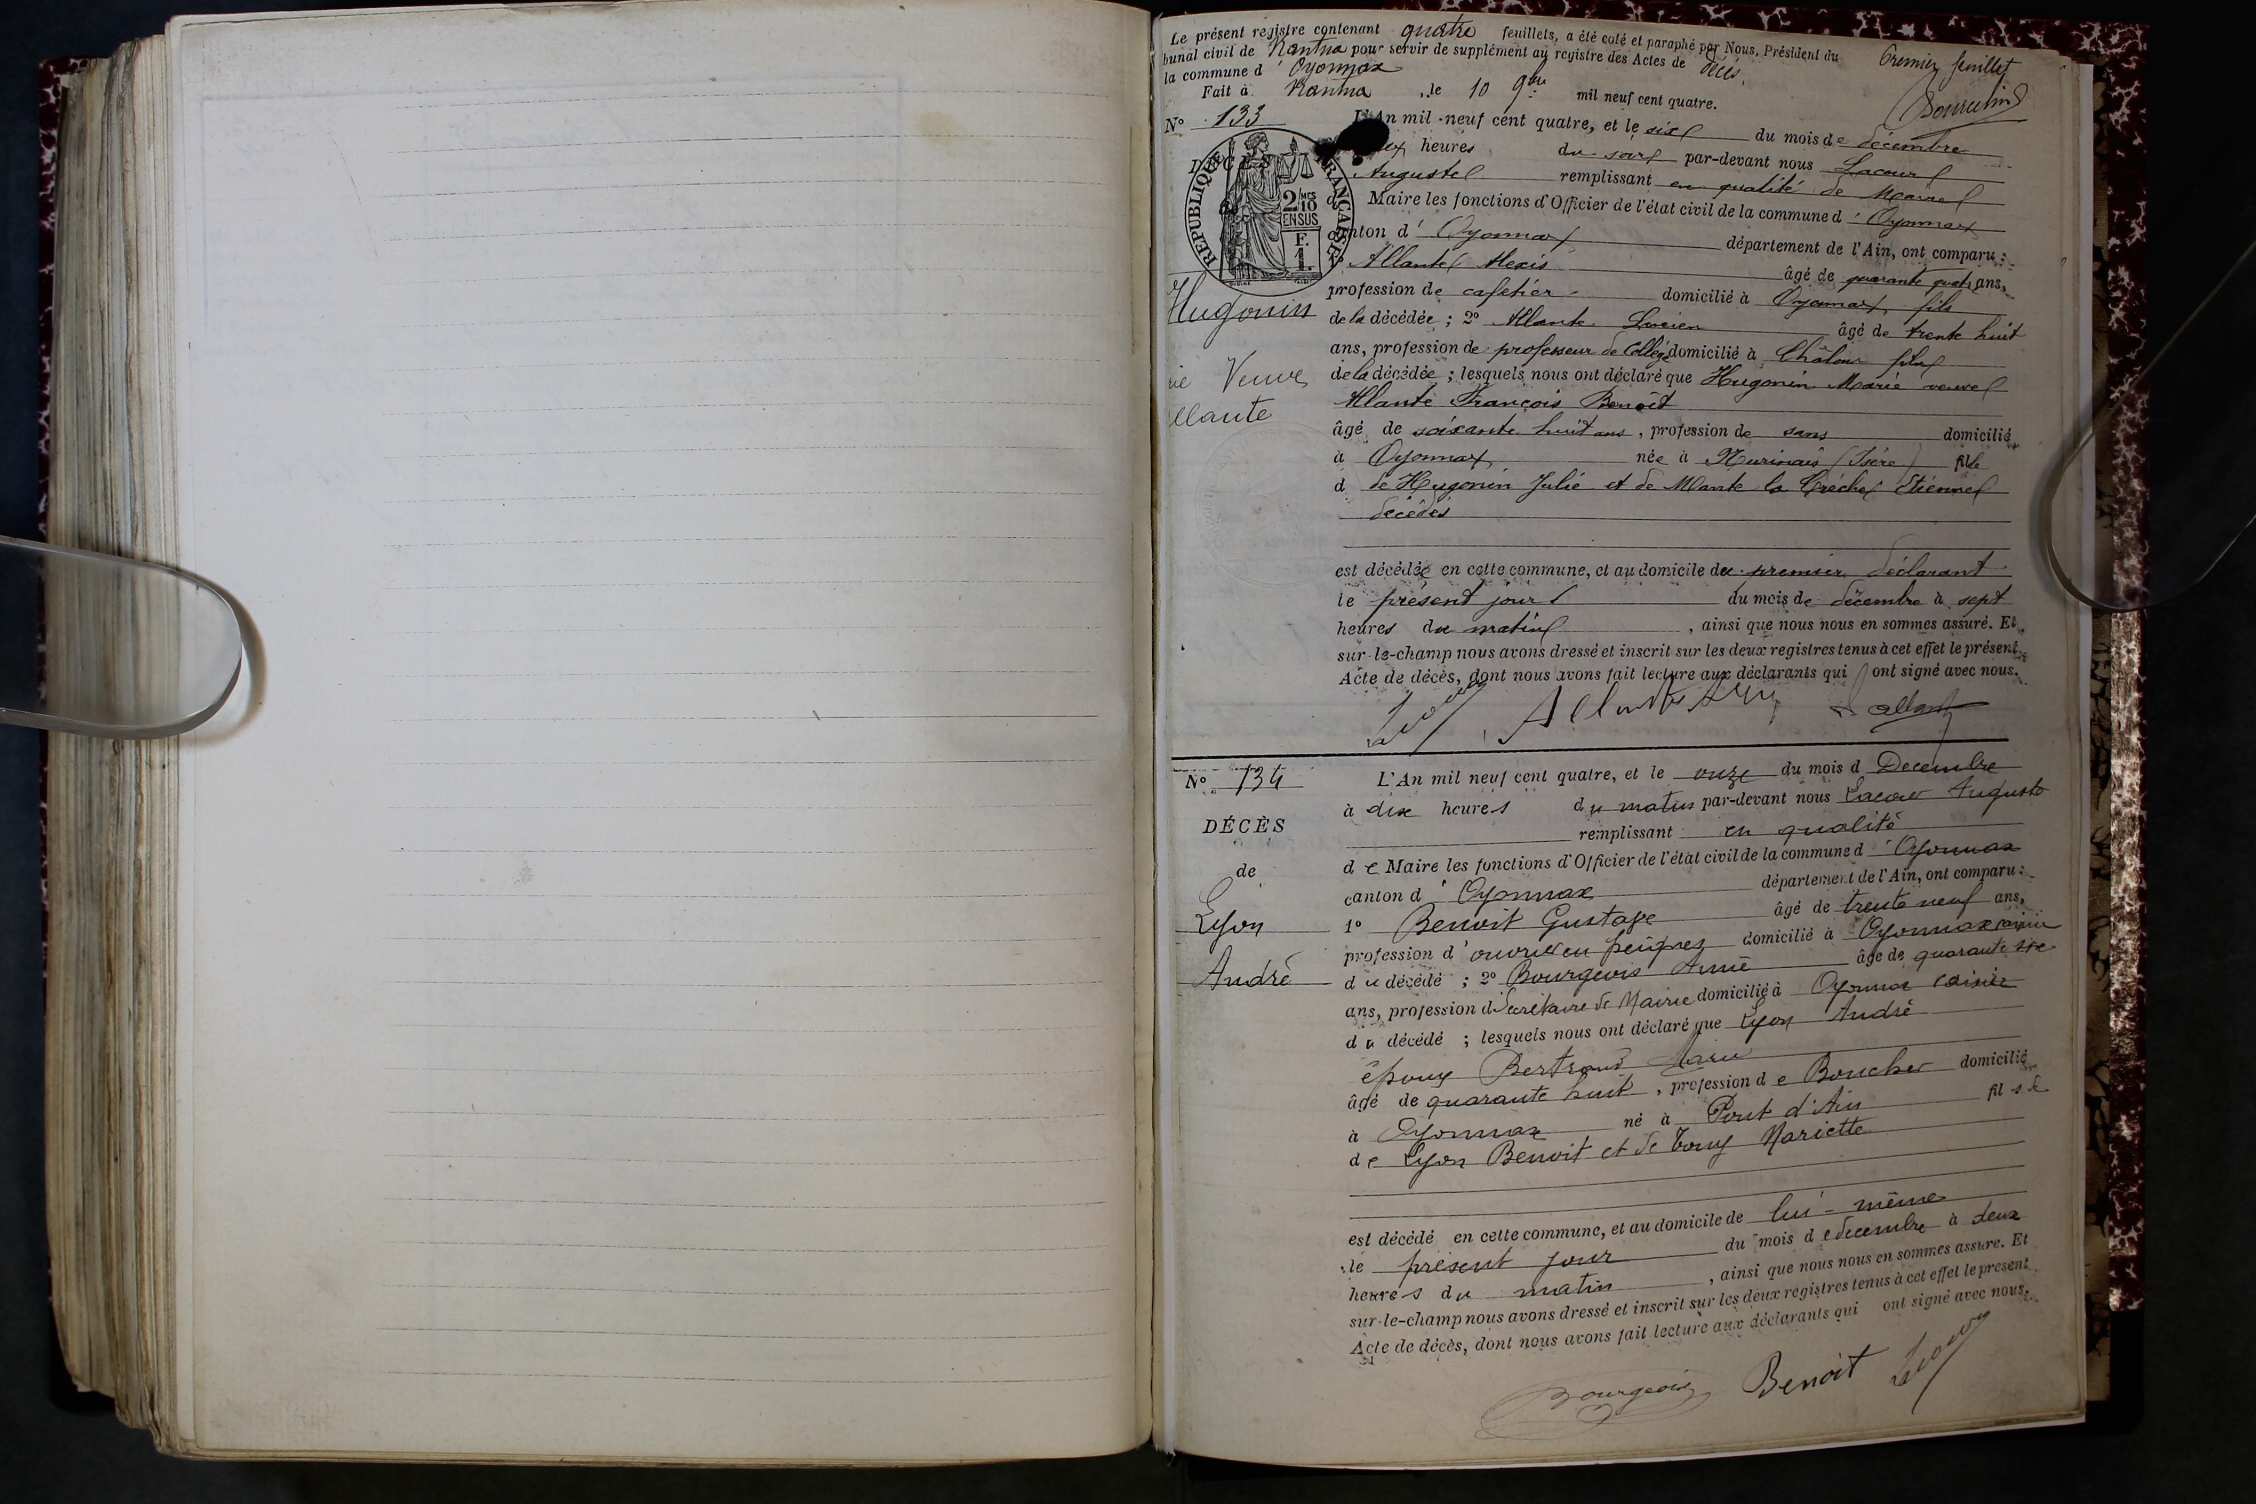 Le présent registre contenant quatre feuillets, a été coté et paraphé par Nous, Président du
bunal civil de Nantua pour servir de supplément au registre des Actes de décès
la commune d'Oyonnax
Fait à Nantua, le 10 9bre mil neuf cent quatre.
Premier feuillet
N° 133
L'An mil neuf cent quatre, et le six du mois de décembre
heures du soir par-devant nous Lacour
Auguste remplissant en qualité de Maire
Maire les fonctions d'Officier de l'état civil de la commune d'Oyonnax
canton d'Oyonnax département de l'Ain, ont comparu :
RÉPUBLIQUE FRANÇAISE
2/10 EN SUS
F. 1.
Allante Alexis âgé de quarante quatre ans,
profession de cafetier domicilié à Oyonnax fils
Hugonin
de la décédée ; 2° Allante Lucien âgé de trente huit
ans, profession de professeur de Collège domicilié à Châlon fils
ie Veuve
de la décédée ; lesquels nous ont déclaré que Hugonin Marie veuve
llante
Allante François Benoît
âgé de soixante huit ans, profession de sans domicilié
à Oyonnax née à Murinais (Isère) fille
d de Hugonin Julie et de Allante la Crèche Etienne
décédés
est décédée en cette commune, et au domicile du premier déclarant
le présent jour du mois de décembre à sept
heures du matin, ainsi que nous nous en sommes assuré. Et
sur-le-champ nous avons dressé et inscrit sur les deux registres tenus à cet effet le présent
Acte de décès, dont nous avons fait lecture aux déclarants qui ont signé avec nous.
N° 134
L'An mil neuf cent quatre, et le onze du mois d Decembre
à dix heures du matin par-devant nous Lacour Auguste
DÉCÈS
remplissant en qualité
de
de Maire les fonctions d'Officier de l'état civil de la commune d'Oyonnax
canton d'Oyonnax département de l'Ain, ont comparu :
Lyon
1° Benoit Gustave âgé de trente neuf ans,
profession d'ouvrier en peignes domicilié à Oyonnax voisin
André
du décédé ; 2° Bourgeois Aimé âgé de quarante six
ans, profession d Secrétaire de Mairie domicilié à Oyonnax voisin
du décédé ; lesquels nous ont déclaré que Lyon André
époux Bertrand Marie
âgé de quarante huit, profession de Boucher domicilié
à Oyonnax né à Pont d'Ain fils de
de Lyon Benoit et de Mariette
est décédé en cette commune, et au domicile de lui-même
le présent jour du mois de decembre à deux
heures du matin, ainsi que nous nous en sommes assuré. Et
sur-le-champ nous avons dressé et inscrit sur les deux registres tenus à cet effet le présent
Acte de décès, dont nous avons fait lecture aux déclarants qui ont signé avec nous.
Bourgeois Benoit